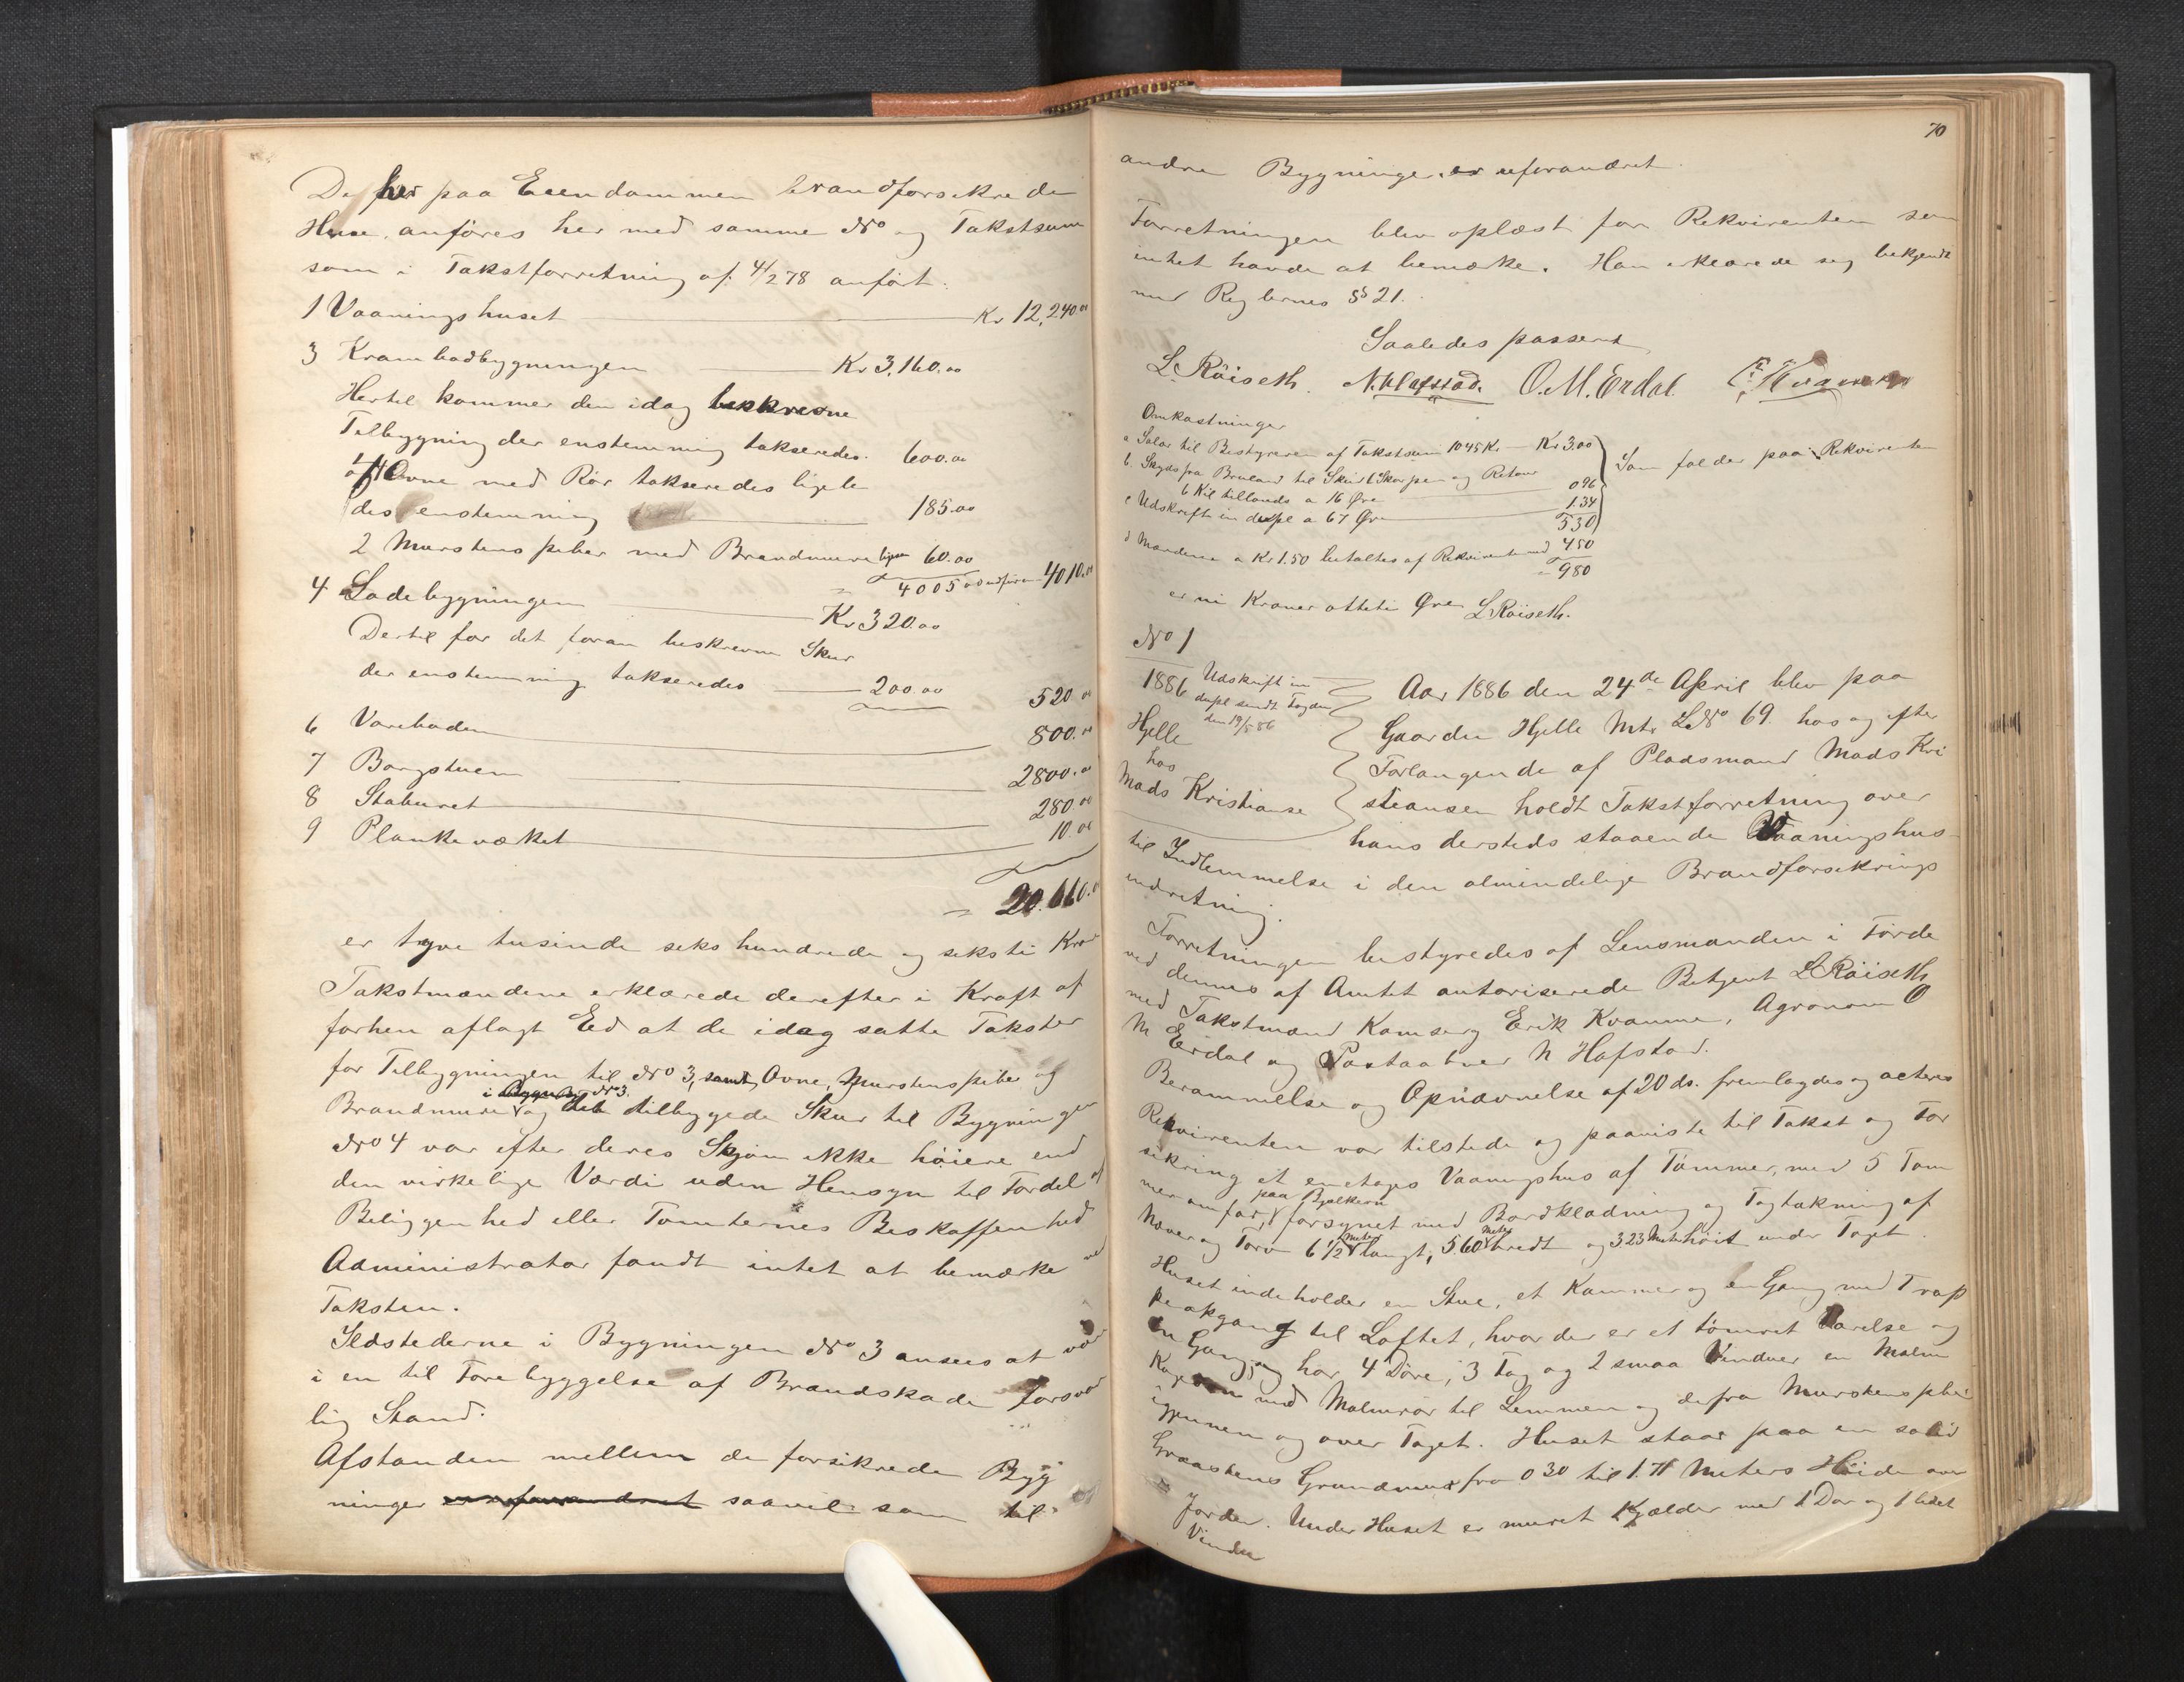 De her paa Eiendommen brandforsikrede
Huse anføres her med samme No og Takstsum
som i Takstforretning af 4/2 78 anført.
1 Vaaningshuset Kr 12,240.00
3 Krambodbygningen Kr 3,160.00
Hertil kommer den idag beskrevne
Tilbygning der enstemmig takseredes 600.00
Ovne med Rör takseredes ligele
des enstemmig 185.00
2 Murstens piber med Brandmure 60.00
= 4005.00 4010.00
4 Ladebygningen Kr 320.00
Dertil for det foran beskrevne Skur
der enstemmig takseredes 200.00 520.00
6 Vareboden 800.00
7 Borgstuen 2800.00
8 Staburet 280.00
9 Plankeværket 10.00
= 20.660.0
er tyve tusinde seks hundrede og seksti Kro
Takstmændene erklærede derefter i Kraft af
forhen aflagt Ed at de idag satte Takster
for Tilbygningen til No 3, samt Ovne, Murstenspiber og
i Bygning No 3.
Brandmure og det tilbyggede Skur til Bygningen
No 4 var efter deres Skjøn ikke höiere end
den virkelige Værdi uden Hensyn til Fordel af
Beliggenhed eller Tomternes Beskaffenhed
Administrator fandt intet at bemærke ved
Taksten.
Ildstederne i Bygningen No 3 ansees at være
i en til Forebyggelse af Brandskade forsvar
lig Stand.
Afstanden mellem de forsikrede Byg
ninger er uforandret saavel som til
70
andre Bygninger er uforandret
Forretningen blev oplæst for Rekvirenten som
intet havde at bemærke. Han erklærede sig bekjendt
med Reglernes § 21.
Saaledes passeret
L Röiseth. N. Hafstad. O. M. Erdal. E. Kvamme
Omkostninger
a Salær til Bestyreren af Takstsum 1045 Kr. Kr 3.00
b. Skyds fra Bruland til Skei og Retour
6 Kil tillands a 16 Øre 0 96
c Udskrift in dupl a 67 Øre 1.34
5 30
Som falder paa Rekvirenten
d Mændene a Kr 1.50 betaltes af Rekvirenten med 4 50
= 9 80
er ni Kroner otteti Øre L Röiseth.
No 1
1886
Udskrift in
dupl sendt Fogden
den 19/5 86
Hjelle
hos
Mads Kristianse
Aar 1886 den 24de April blev paa
Gaarden Hjelle Mtr. L No 69. hos og efter
Forlangende af Pladsmand Mads Kri
stiansen holdt Takstforretning over
hans dersteds staaende Vaaningshus
til Indlemmelse i den almindelige Brandforsikrings
indretning.
Forretningen bestyredes af Lensmanden i Förde
ved dennes af Amtet autoriserede Betjent L Röiseth
med Takstmænd Erik Kvamme, Agronom O
M Erdal og Postaabner N Hafstad.
Berammelse og Opnævnelse af 20 ds. fremlagdes og acteres
Rekvirenten var tilstede og paaviste til Takst og For
sikring et enetages Vaaningshus af Tömmer, med 5 Töm
paa Bjelkern
mer omfar, forsynet med Bordklædning og Tagtækning af
Næver og Torv 6 1/2 Meter langt, 5.60 Meter bredt og 3.23 Meter höit under Taget.
Huset indeholder en Stue, et Kammer og en Gang med Trap
peopgang til Loftet, hvor der er et tömret Værelse og
en Gang, og har 4 Döre, 3 Fag og 2 smaa Vinduer en Malm
Kakelovn med Malmrör til Lemmen og defra Murstenspibe
igjennem og over Taget. Huset staar paa en solid
Graastens Grundmur fra 0 30 til 1.71 Meters Höide over
Jorden. Under Huset er muret Kjælder med 1 Dör og 1 lidet
Vindu